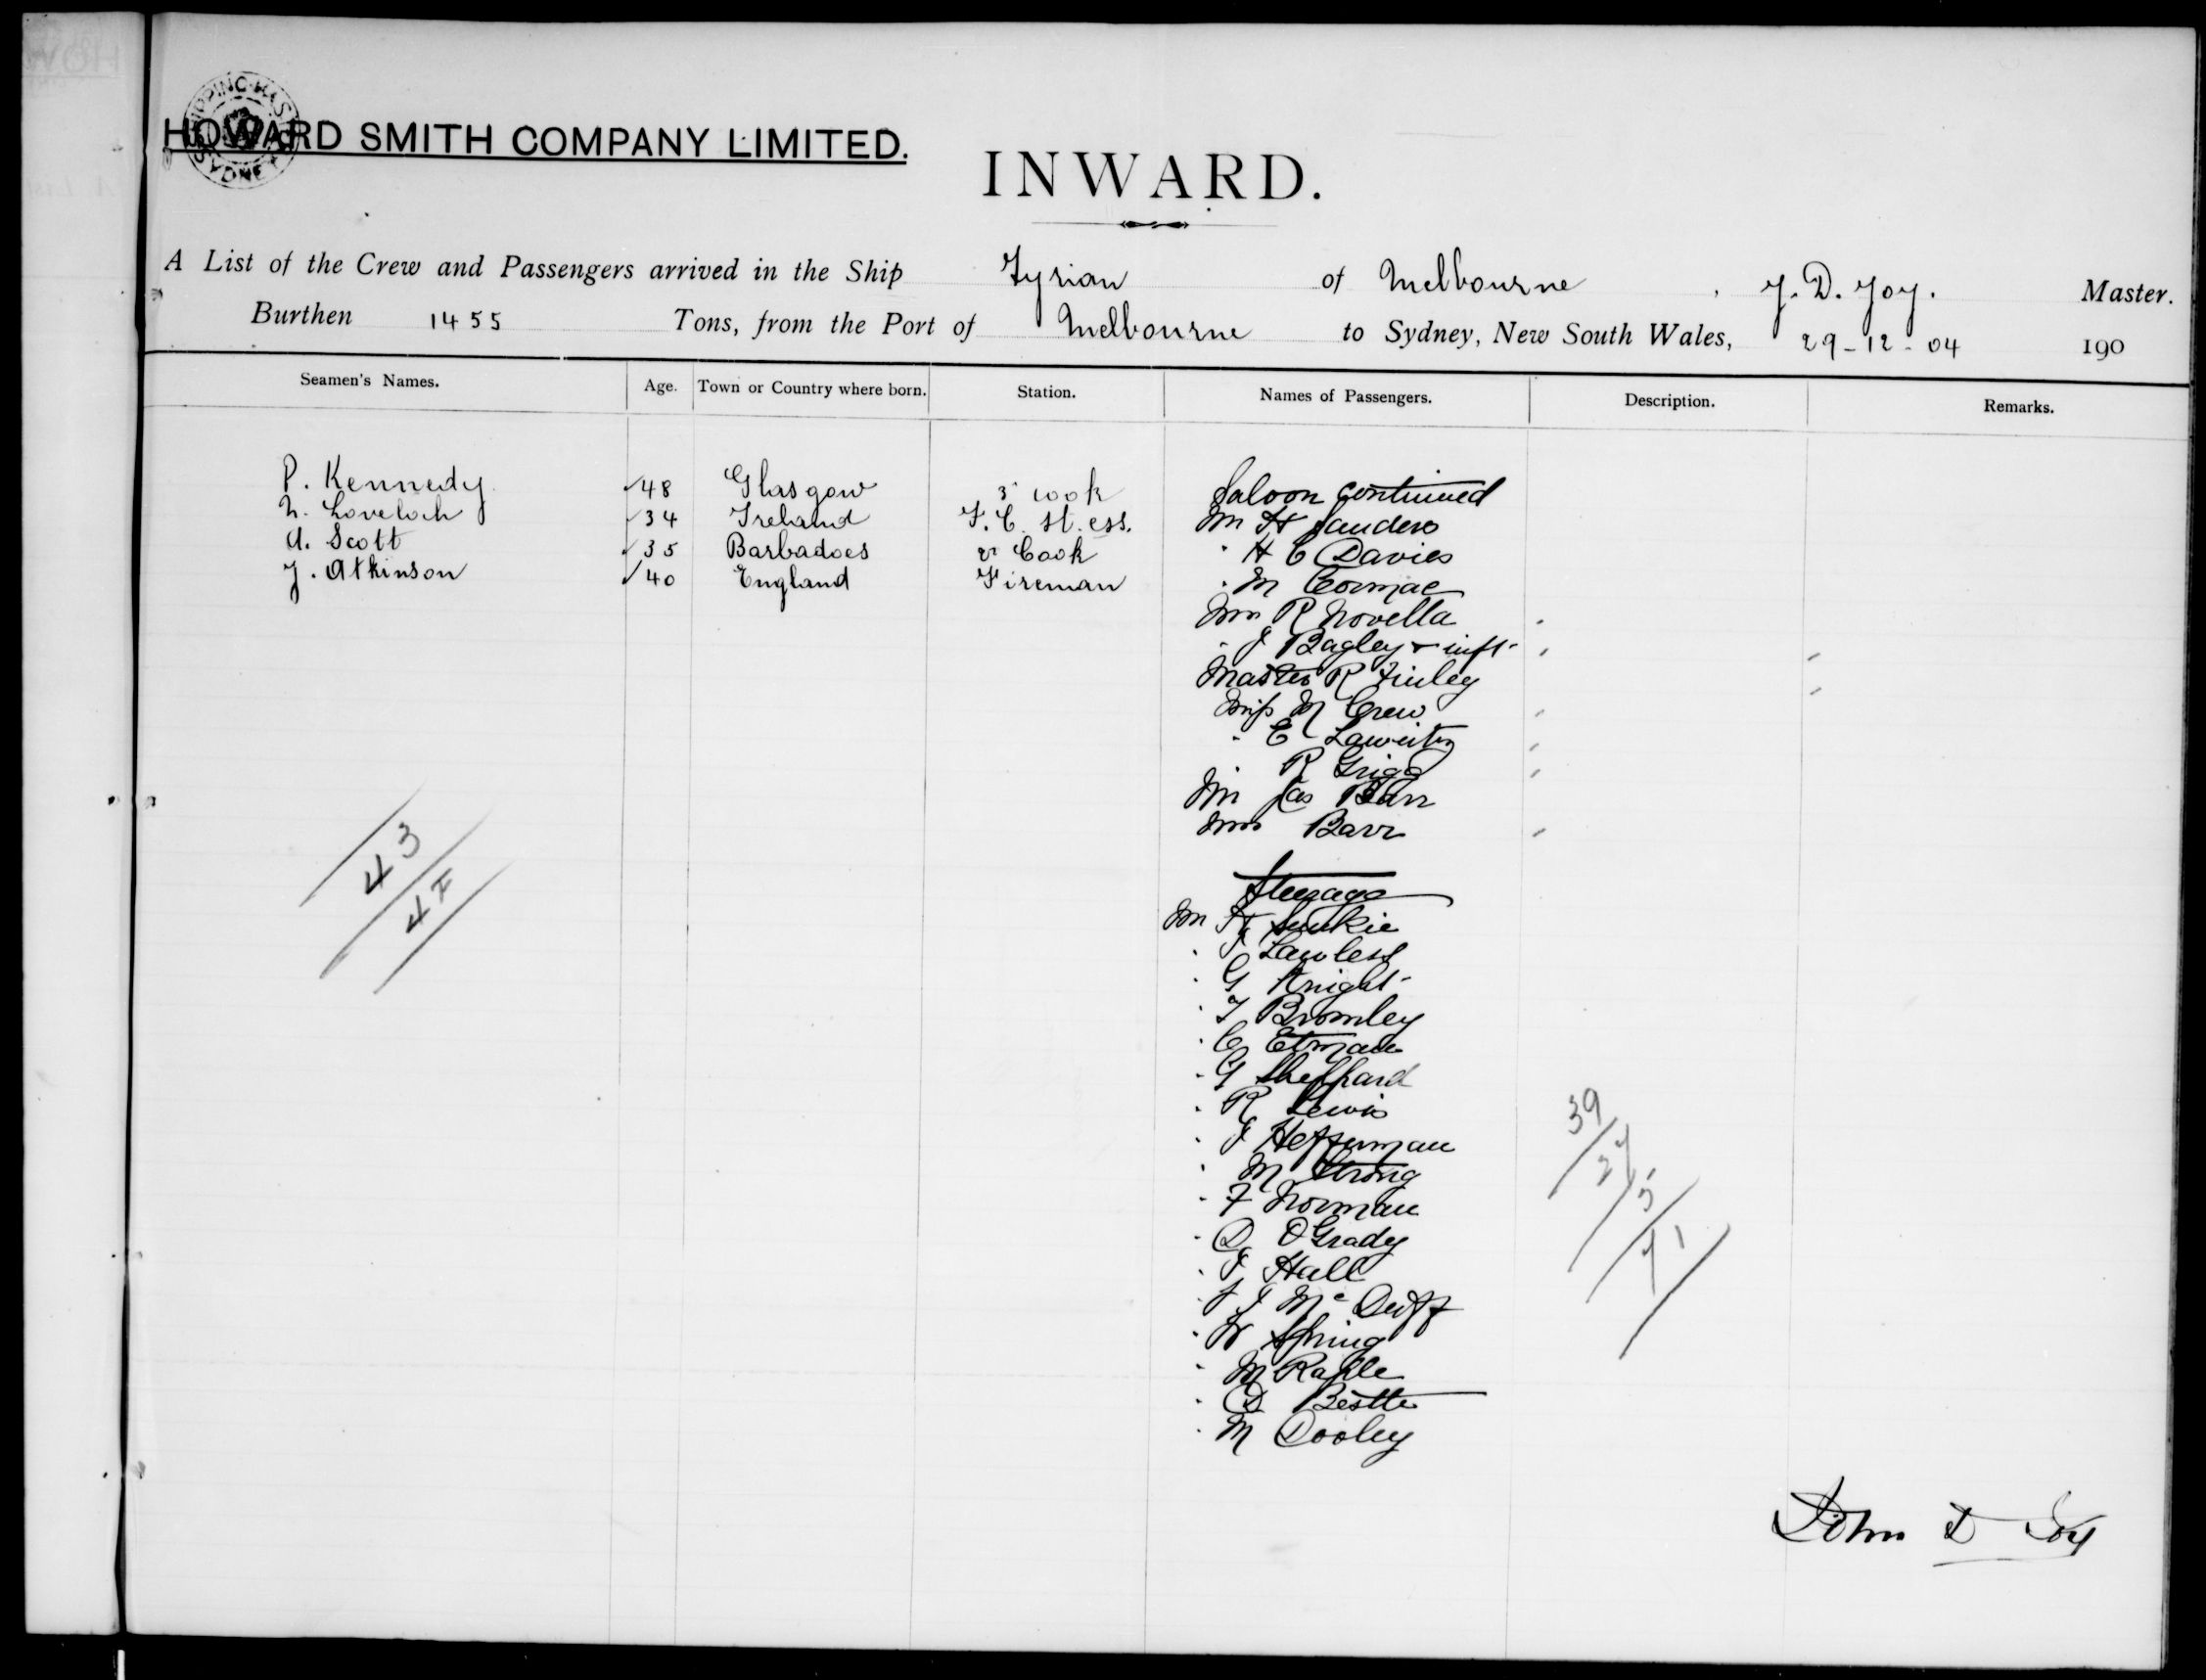 HOWARD SMITH COMPANY LIMITED.
SHIPPING MASTER SYDNEY
INWARD.
A List of the Crew and Passengers arrived in the Ship Tyrian of Melbourne, J. D. Joy. Master.
Burthen 1455 Tons, from the Port of Melbourne to Sydney, New South Wales, 29-12-04 190
Seamen's Names. Age. Town or Country where born. Station. Names of Passengers. Description. Remarks.
P. Kennedy 48 Glasgow 3 cook
Lovelock 34 Ireland F. C. St. ess.
A. Scott 35 Barbadoes 2 Cook
J. Atkinson 40 England Fireman
Saloon Continued
Mr H Sanders
" H C Davies
" M Cormac
Mrs R Novella
" J Bagley & inft
Master R Finley
Miss M Crew
" E
" R Grigg
Mr Jas Barr
Mrs Barr
Steerage
Mr H
" J Lawless
" G Knight
" T Bromley
" C
" G Sheppard
" R Lewis
" J Heffernan
" M Strong
" F Norman
" D O'Grady
" J Hall
" J J McDuff
" W Spring
" M
" D
" M Dooley
43
47
39
27
5
71
John D Joy